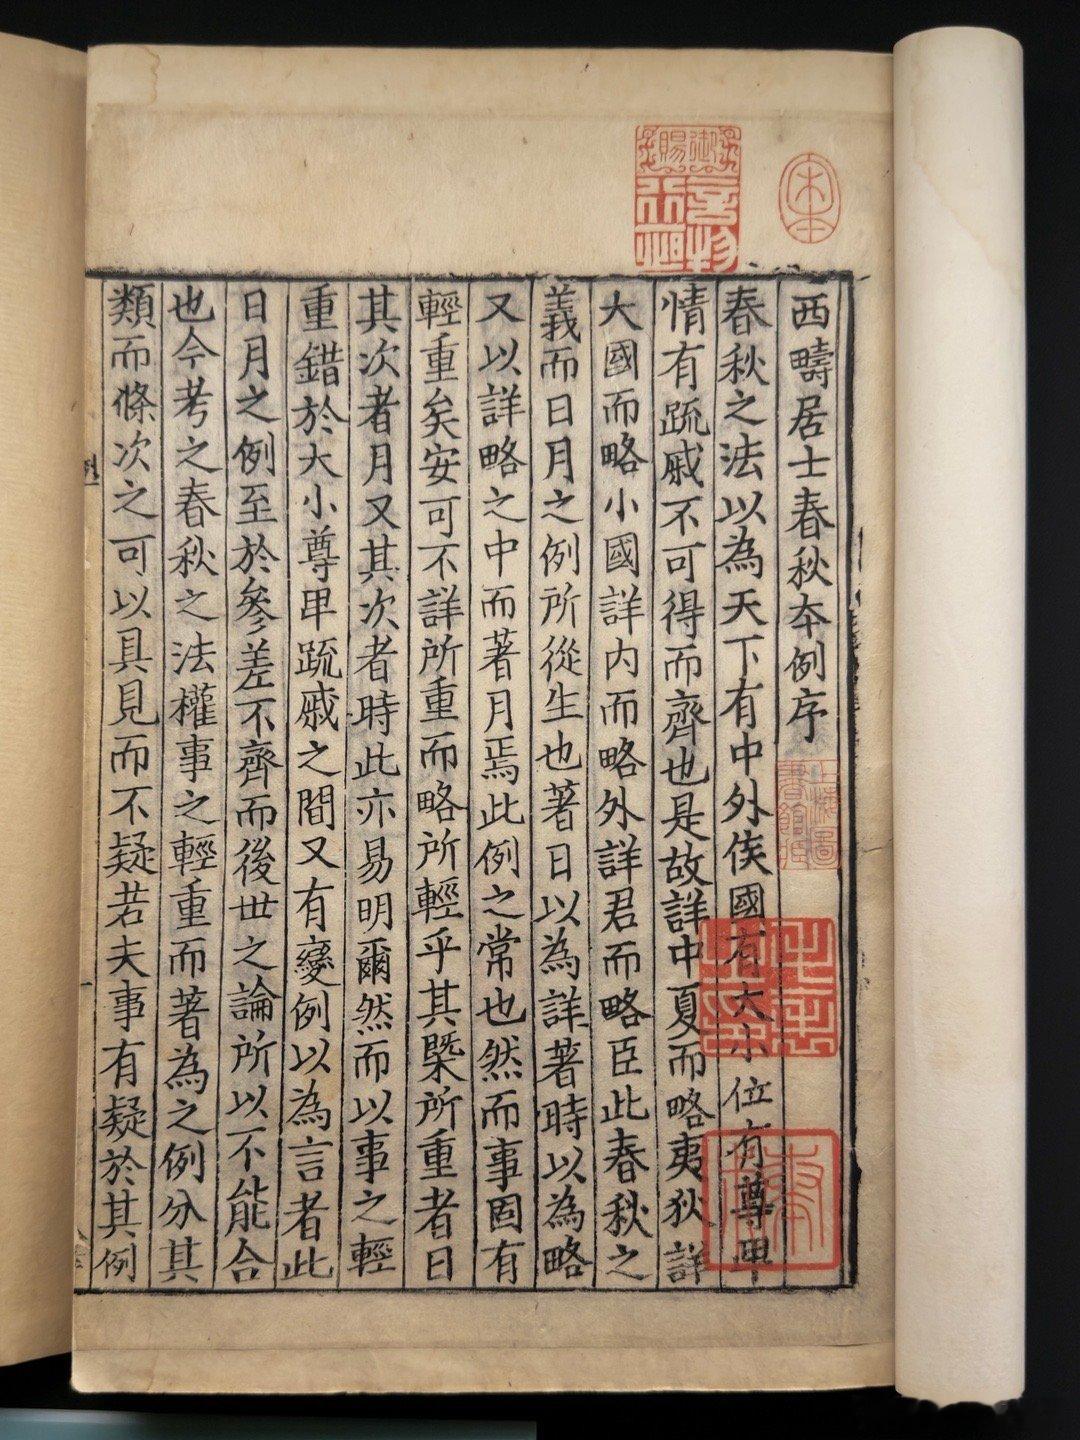 西疇居士春秋本例序
春秋之法以為天下有中外侯國有大小位有尊卑
情有疏戚不可得而齊也是故詳中夏而略夷狄詳
大國而略小國詳内而略外詳君而略臣此春秋之
義而日月之例所從生也著日以為詳著時以為略
又以詳略之中而著月焉此例之常也然而事固有
輕重矣安可不詳所重而略所輕乎其槩所重者日
其次者月又其次者時此亦易明爾然而以事之輕
重錯於大小尊卑疏戚之間又有變例以為言者此
日月之例至於參差不齊而後世之論所以不能合
也今考之春秋之法權事之輕重而著為之例分其
類而條次之可以具見而不疑若夫事有疑於其例
御賜
宋本
上海圖書館藏